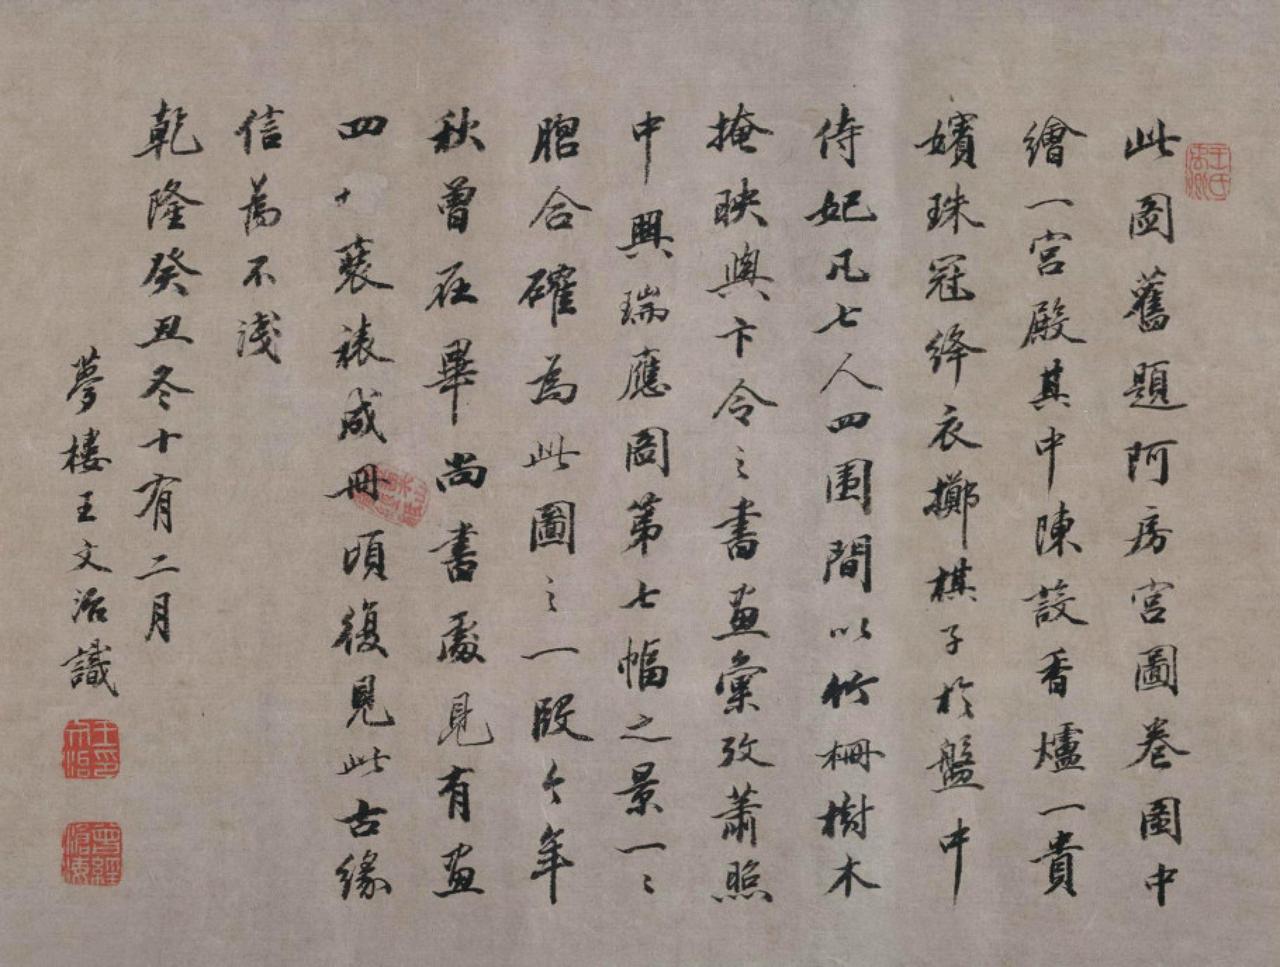 此圖舊題阿房宮圖卷圖中
繪一宮殿其中陳設香爐一貴
嬪珠冠絳衣擲棋子於盤中
侍妃凡七人四围間以竹柵樹木
掩映與卞令之書畫彙攷蕭照
中興瑞應圖第七幅之景一〻
脗合確為此圖之一段今年
秋曾在畢尚書處見有畫
四十裝裱成冊頃復見此古緣
信為不淺
乾隆癸丑冬十有二月
夢樓王文治識
王文治印
曾經滄海